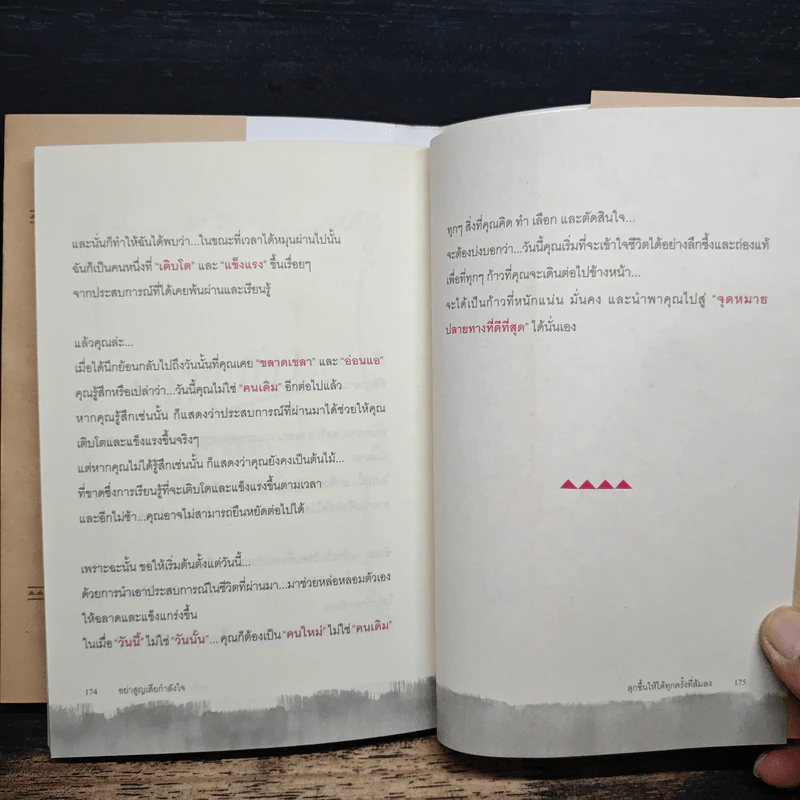 และนั่นก็ทำให้ฉันได้พบว่า...ในขณะที่เวลาได้หมุนผ่านไปนั้น
ฉันก็เป็นคนหนึ่งที่ "เติบโต" และ "แข็งแรง" ขึ้นเรื่อยๆ
จากประสบการณ์ที่ได้เคยพ้นผ่านและเรียนรู้
แล้วคุณล่ะ...
เมื่อได้นึกย้อนกลับไปถึงวันนั้นที่คุณเคย "ขลาดเขลา" และ "อ่อนแอ"
คุณรู้สึกหรือเปล่าว่า...วันนี้คุณไม่ใช่ "คนเดิม" อีกต่อไปแล้ว
หากคุณรู้สึกเช่นนั้น ก็แสดงว่าประสบการณ์ที่ผ่านมาได้ช่วยให้คุณ
เติบโตและแข็งแรงขึ้นจริงๆ
แต่หากคุณไม่ได้รู้สึกเช่นนั้น ก็แสดงว่าคุณยังคงเป็นต้นไม้...
ที่ขาดซึ่งการเรียนรู้ที่จะเติบโตและแข็งแรงขึ้นตามเวลา
และอีกไม่ช้า...คุณอาจไม่สามารถยืนหยัดต่อไปได้
เพราะฉะนั้น ขอให้เริ่มต้นตั้งแต่วันนี้...
ด้วยการนำเอาประสบการณ์ในชีวิตที่ผ่านมา...มาช่วยหล่อหลอมตัวเอง
ให้ฉลาดและแข็งแกร่งขึ้น
ในเมื่อ "วันนี้" ไม่ใช่ "วันนั้น"... คุณก็ต้องเป็น "คนใหม่" ไม่ใช่ "คนเดิม"
174 อย่าสูญเสียกำลังใจ
ทุกๆ สิ่งที่คุณคิด ทำ เลือก และตัดสินใจ...
จะต้องบ่งบอกว่า...วันนี้คุณเริ่มที่จะเข้าใจชีวิตได้อย่างลึกซึ้งและถ่องแท้
เพื่อที่ทุกๆ ก้าวที่คุณจะเดินต่อไปข้างหน้า...
จะได้เป็นก้าวที่หนักแน่น มั่นคง และนำพาคุณไปสู่ "จุดหมาย
ปลายทางที่ดีที่สุด" ได้นั่นเอง
ลุกขึ้นให้ได้ทุกครั้งที่ล้มลง 175